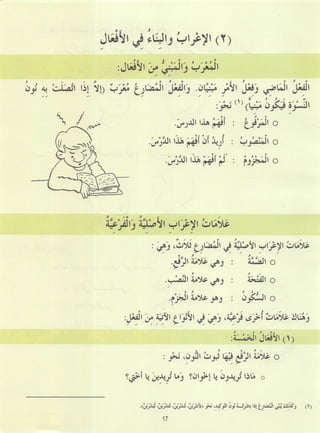 (٢) الإعراب والبناء في الأفعال
المعرب والمبني من الأفعال:
الفعل الماضي وفعل الأمر مبنيان. والفعل المضارع معرب (إلا إذا اتصلت به نون
النسوة فيكون مبنيا) (١) نحو:
○ المرفوع : أفهم هذا الدرس.
○ المنصوب : أريد أن أفهم هذا الدرس.
○ المجزوم : لم أفهم هذا الدرس.
علامات الإعراب الأصلية والفرعية
علامات الإعراب الأصلية في المضارع ثلاث، وهي:
○ الضمة : وهي علامة الرفع.
○ الفتحة : وهي علامة النصب.
○ السكون : وهو علامة الجزم.
وهناك علامات أخرى فرعية، وهي في الأنواع الآتية من الفعل:
(١) الأفعال الخمسة:
○ علامة الرفع فيها ثبوت النون، نحو:
○ ماذا تريدون يا إخوان؟ وما تريدين يا أختي؟
(٢) وكذلك يبنى المضارع إذا باشرته نون التوكيد، نحو
17